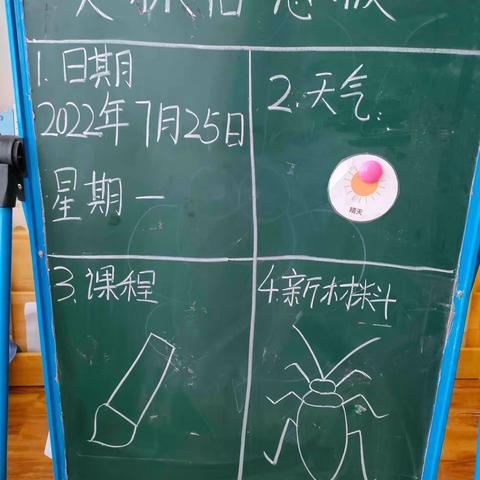 息板
1. 日期
2022年7月25日
星期一
2. 天气:
晴天
3. 课程
4. 新材料